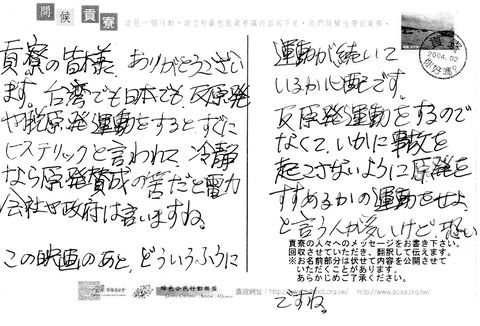 問候貢寮
貢寮の皆様、ありがとうござい
ます。台湾でも日本でも、反原発
や脱原発運動をするとすぐに
ヒステリックと言われて、冷静
なら原発賛成の筈だと電力
会社や政府は言いますね。
この映画のあと、どういうふうに
運動が続いて
いるか心配です。
反原発運動をするので
なくて、いかに事故を
起こさないように原発を
すすめるかの運動をせよ
と言う人が多いけど、恐い
ですね。
貢寮
2004.02
你好嗎?
貢寮の人々へのメッセージをお書き下さい。
回収させていただき、翻訳して伝えます。
※お名前部分は伏せて内容を公開させて
いただくことがあります。
あらかじめご了承ください。
綠色公民行動聯盟